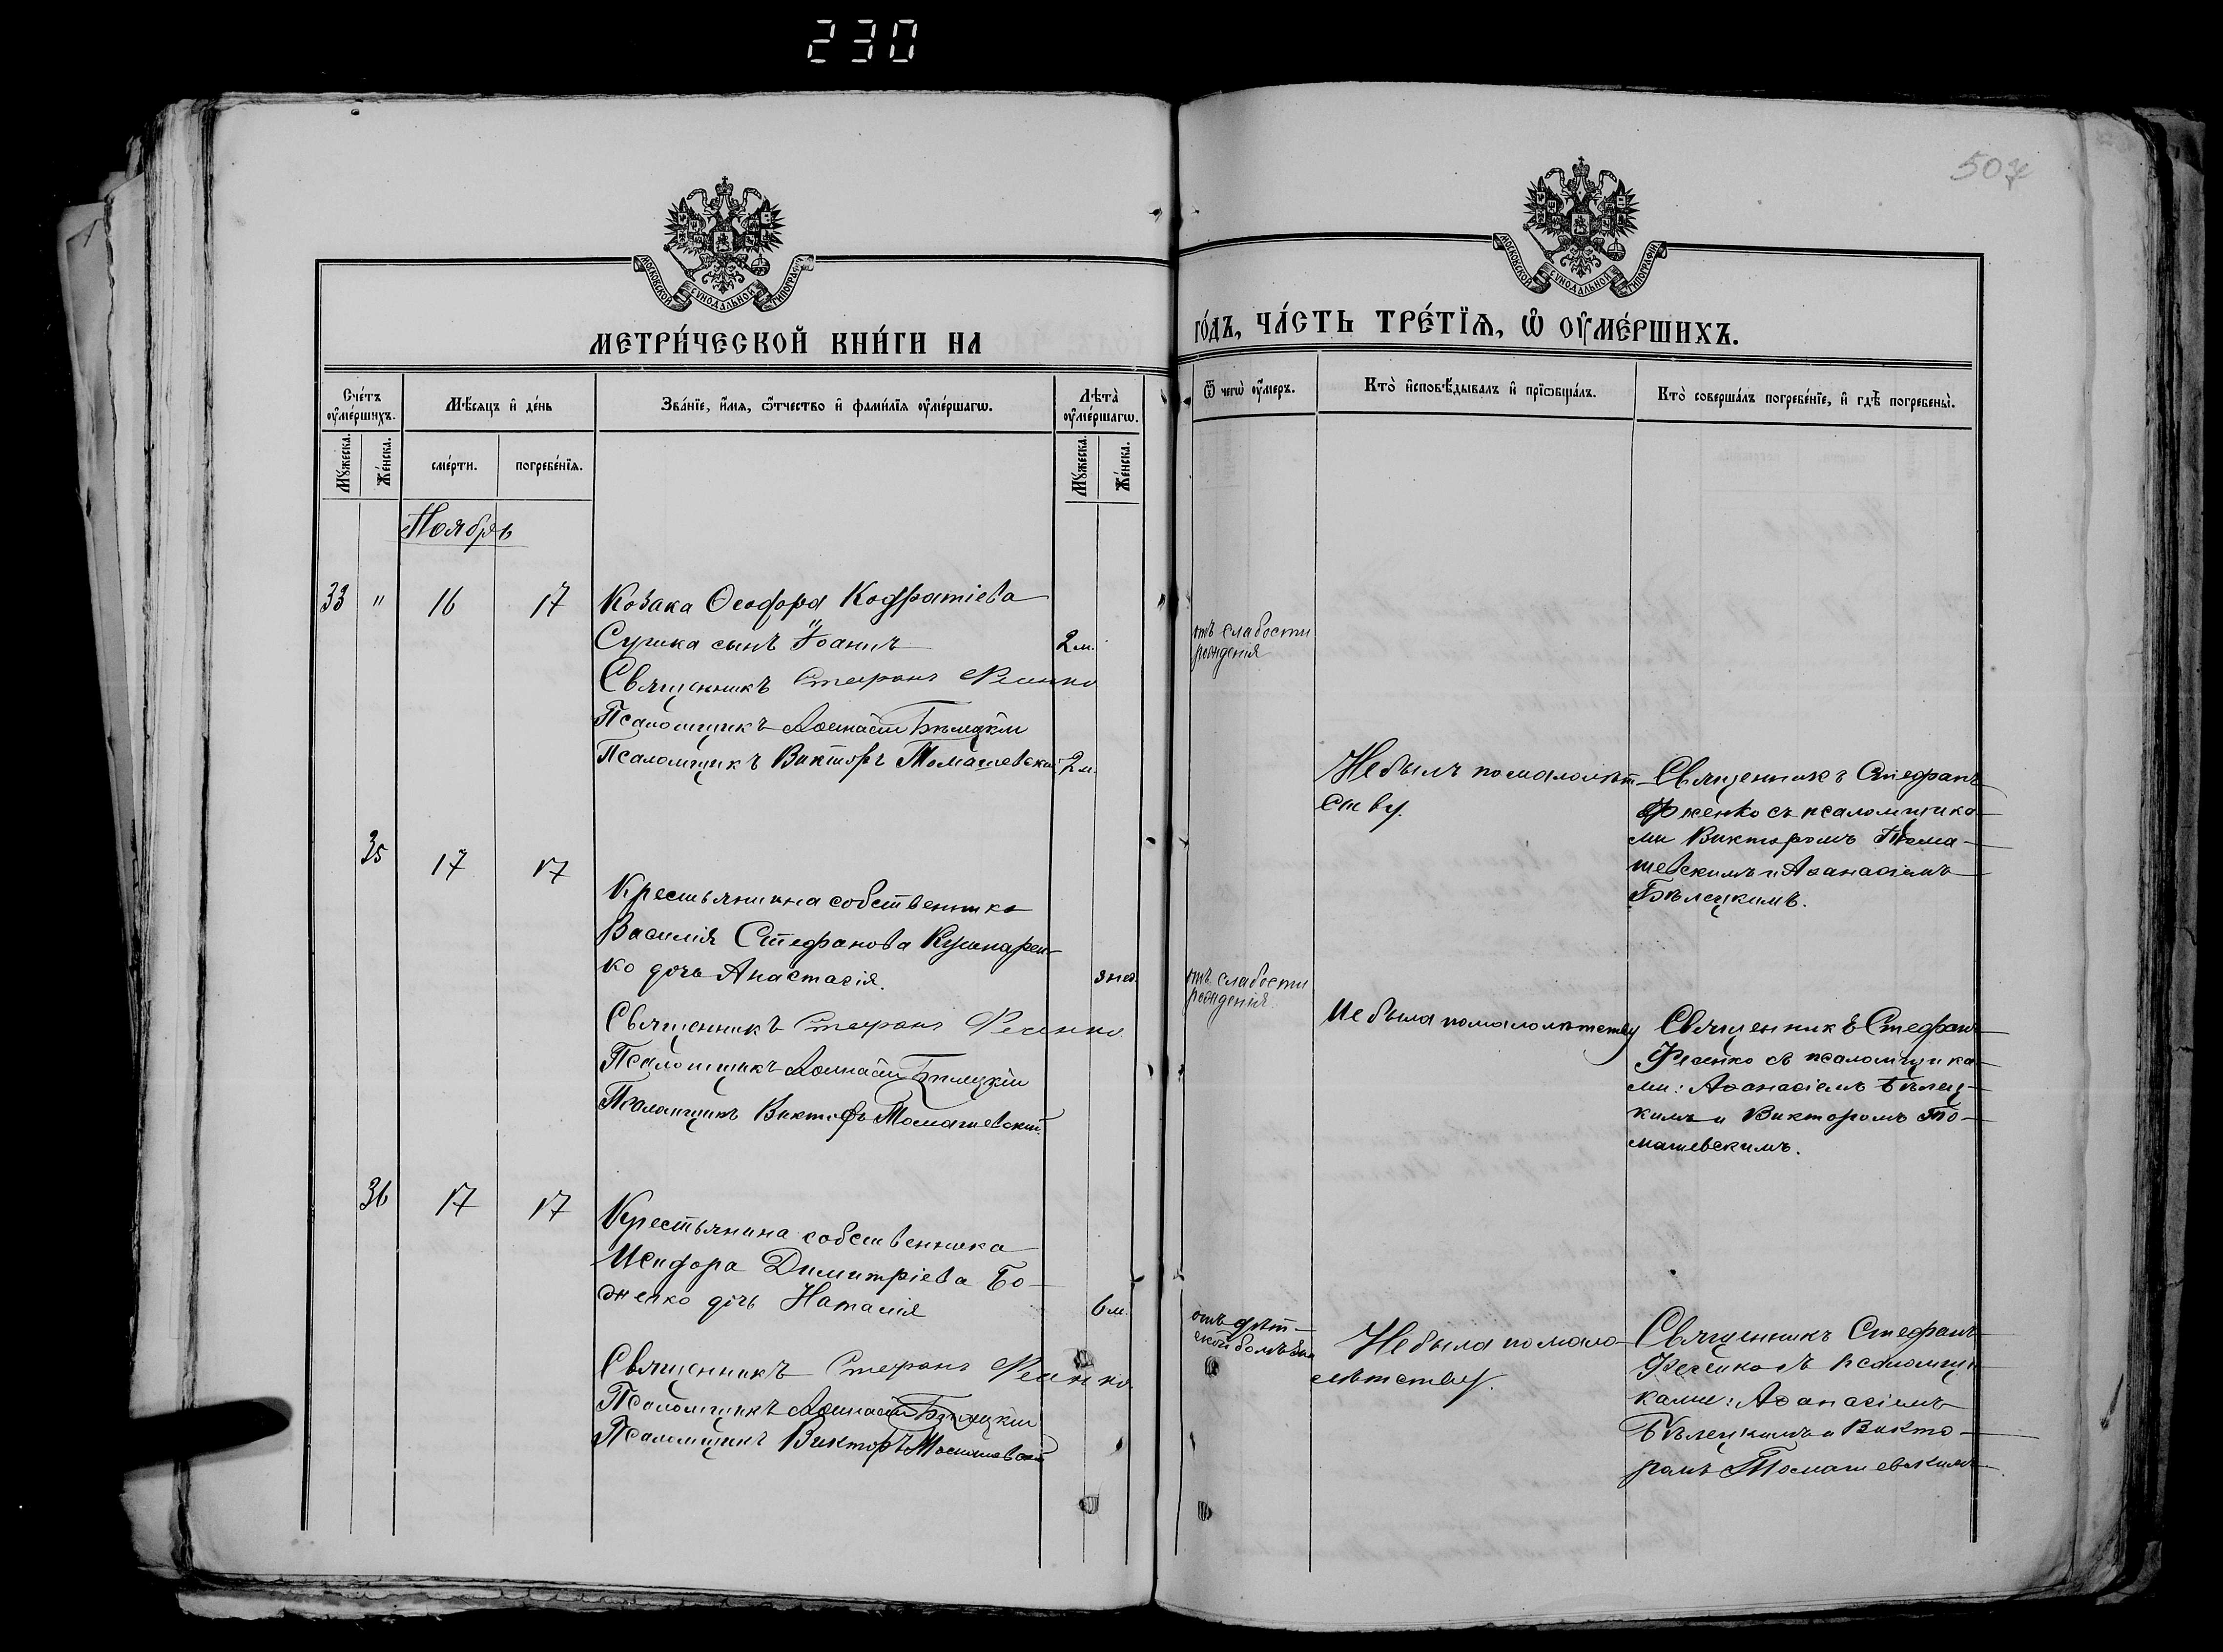 230
507
МОСКОВСКОЙ СѴНОДАЛЬНОЙ ТИПОГРАФІИ
МОСКОВСКОЙ СѴНОДАЛЬНОЙ ТИПОГРАФІИ
МЕТРИ́ЧЕСКОЙ КНИ́ГИ НА
ГО́ДЪ, ЧА́СТЬ ТРЕ́ТЇѦ, Ѽ ОУ҆МЕ́РШИХЪ.
Сче́тъ оу҆ме́ршихъ.
Мꙋ́жеска.
Же́нска.
Мѣ́сяцъ и҆ де́нь
сме́рти.
погребе́нїѧ.
Зва́нїе, и҆́мѧ, ѻ҆́тчество и҆ фами́лїѧ оу҆ме́ршагѡ.
Лѣ̑та оу҆ме́ршагѡ.
Мꙋ́жеска.
Же́нска.
Ѿ чегѡ̀ оу҆́меръ.
Кто̀ и҆сповѣ́дывалъ и҆ прїѡбща́лъ.
Кто̀ соверша́лъ погребе́нїе, и҆ гдѣ̀ погребены̀.
Ноябрь
33 " 16 17
Козака Ѳеодора
Сушка сынъ Іоаннъ 2 м.
Священникъ Стефанъ Фесенко
Псаломщикъ Аѳанасій Бѣлецкій
Псаломщикъ Викторъ Томашевскій 2 м.
отъ слабости
рожденія
Не былъ по малолѣт-
ству.
Священникъ Стефанъ
Фесенко съ псаломщика-
ми Викторомъ Тома-
шевскимъ и Аѳанасіемъ
Бѣлецкимъ.
35 17 17
Крестьянина собственника
Василія Стефанова Кушнарен-
ко дочь Анастасія. 3 нед.
Священникъ Стефанъ Фесенко
Псаломщикъ Аѳанасій Бѣлецкій
Псаломщикъ Викторъ Томашевскій
отъ слабости
рожденія
Не была по малолѣтству
Священникъ Стефанъ
Фесенко съ псаломщика-
ми: Аѳанасіемъ Бѣлец-
кимъ и Викторомъ То-
машевскимъ.
36 17 17
Крестьянина собственника
Димитріева Бо-
женко дочь Наталія 6 м.
Священникъ Стефанъ Фесенко
Псаломщикъ Аѳанасій Бѣлецкій
Псаломщикъ Викторъ Томашевскій
отъ дѣт-
ской болѣзни
Не была по мало-
лѣтству.
Священникъ Стефанъ
Фесенко съ псаломщи-
ками: Аѳанасіемъ
Бѣлецкимъ и Викто-
ромъ Томашевскимъ.